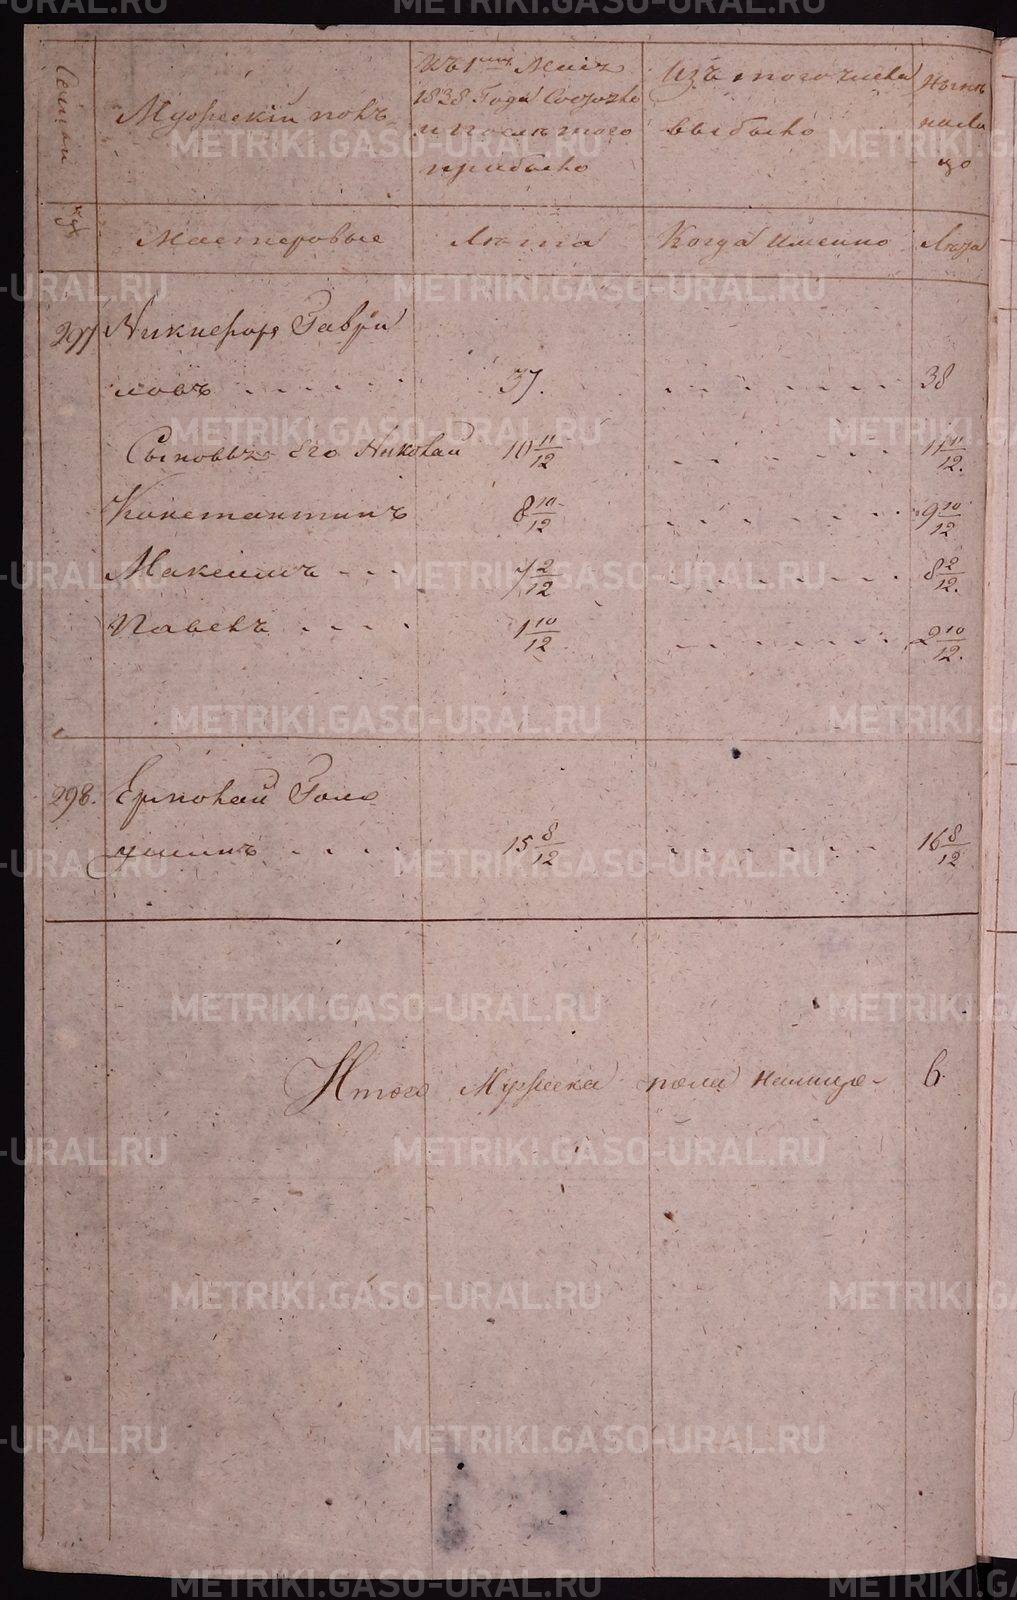 Семьи
Мужескій полъ
Къ 1му Маія
1838 Года Состояло
и послѣ того
прибыло
Изъ того числа
выбыло
Нынѣ
нали
цо
Мастеровые
Лѣта
Когда именно
Лѣта
297 Никифоръ Гаври
ловъ . . . . . 37. . . . . . . . 38
Сыновья его Николай 10 11/12 . . . . . . 11 11/12.
Константинъ 8 10/12 . . . . . . 9 10/12
Максимъ - - - 7 2/12 . . . . . . . 8 2/12.
Павелъ . . . . 1 10/12 . . . . . . . 2 10/12.
298. Ермолай Голо
ушинъ . . . . 15 8/12 . . . . . . . 16 8/12
Итого Мужеска пола налицо - 6.
METRIKI.GASO-URAL.RU